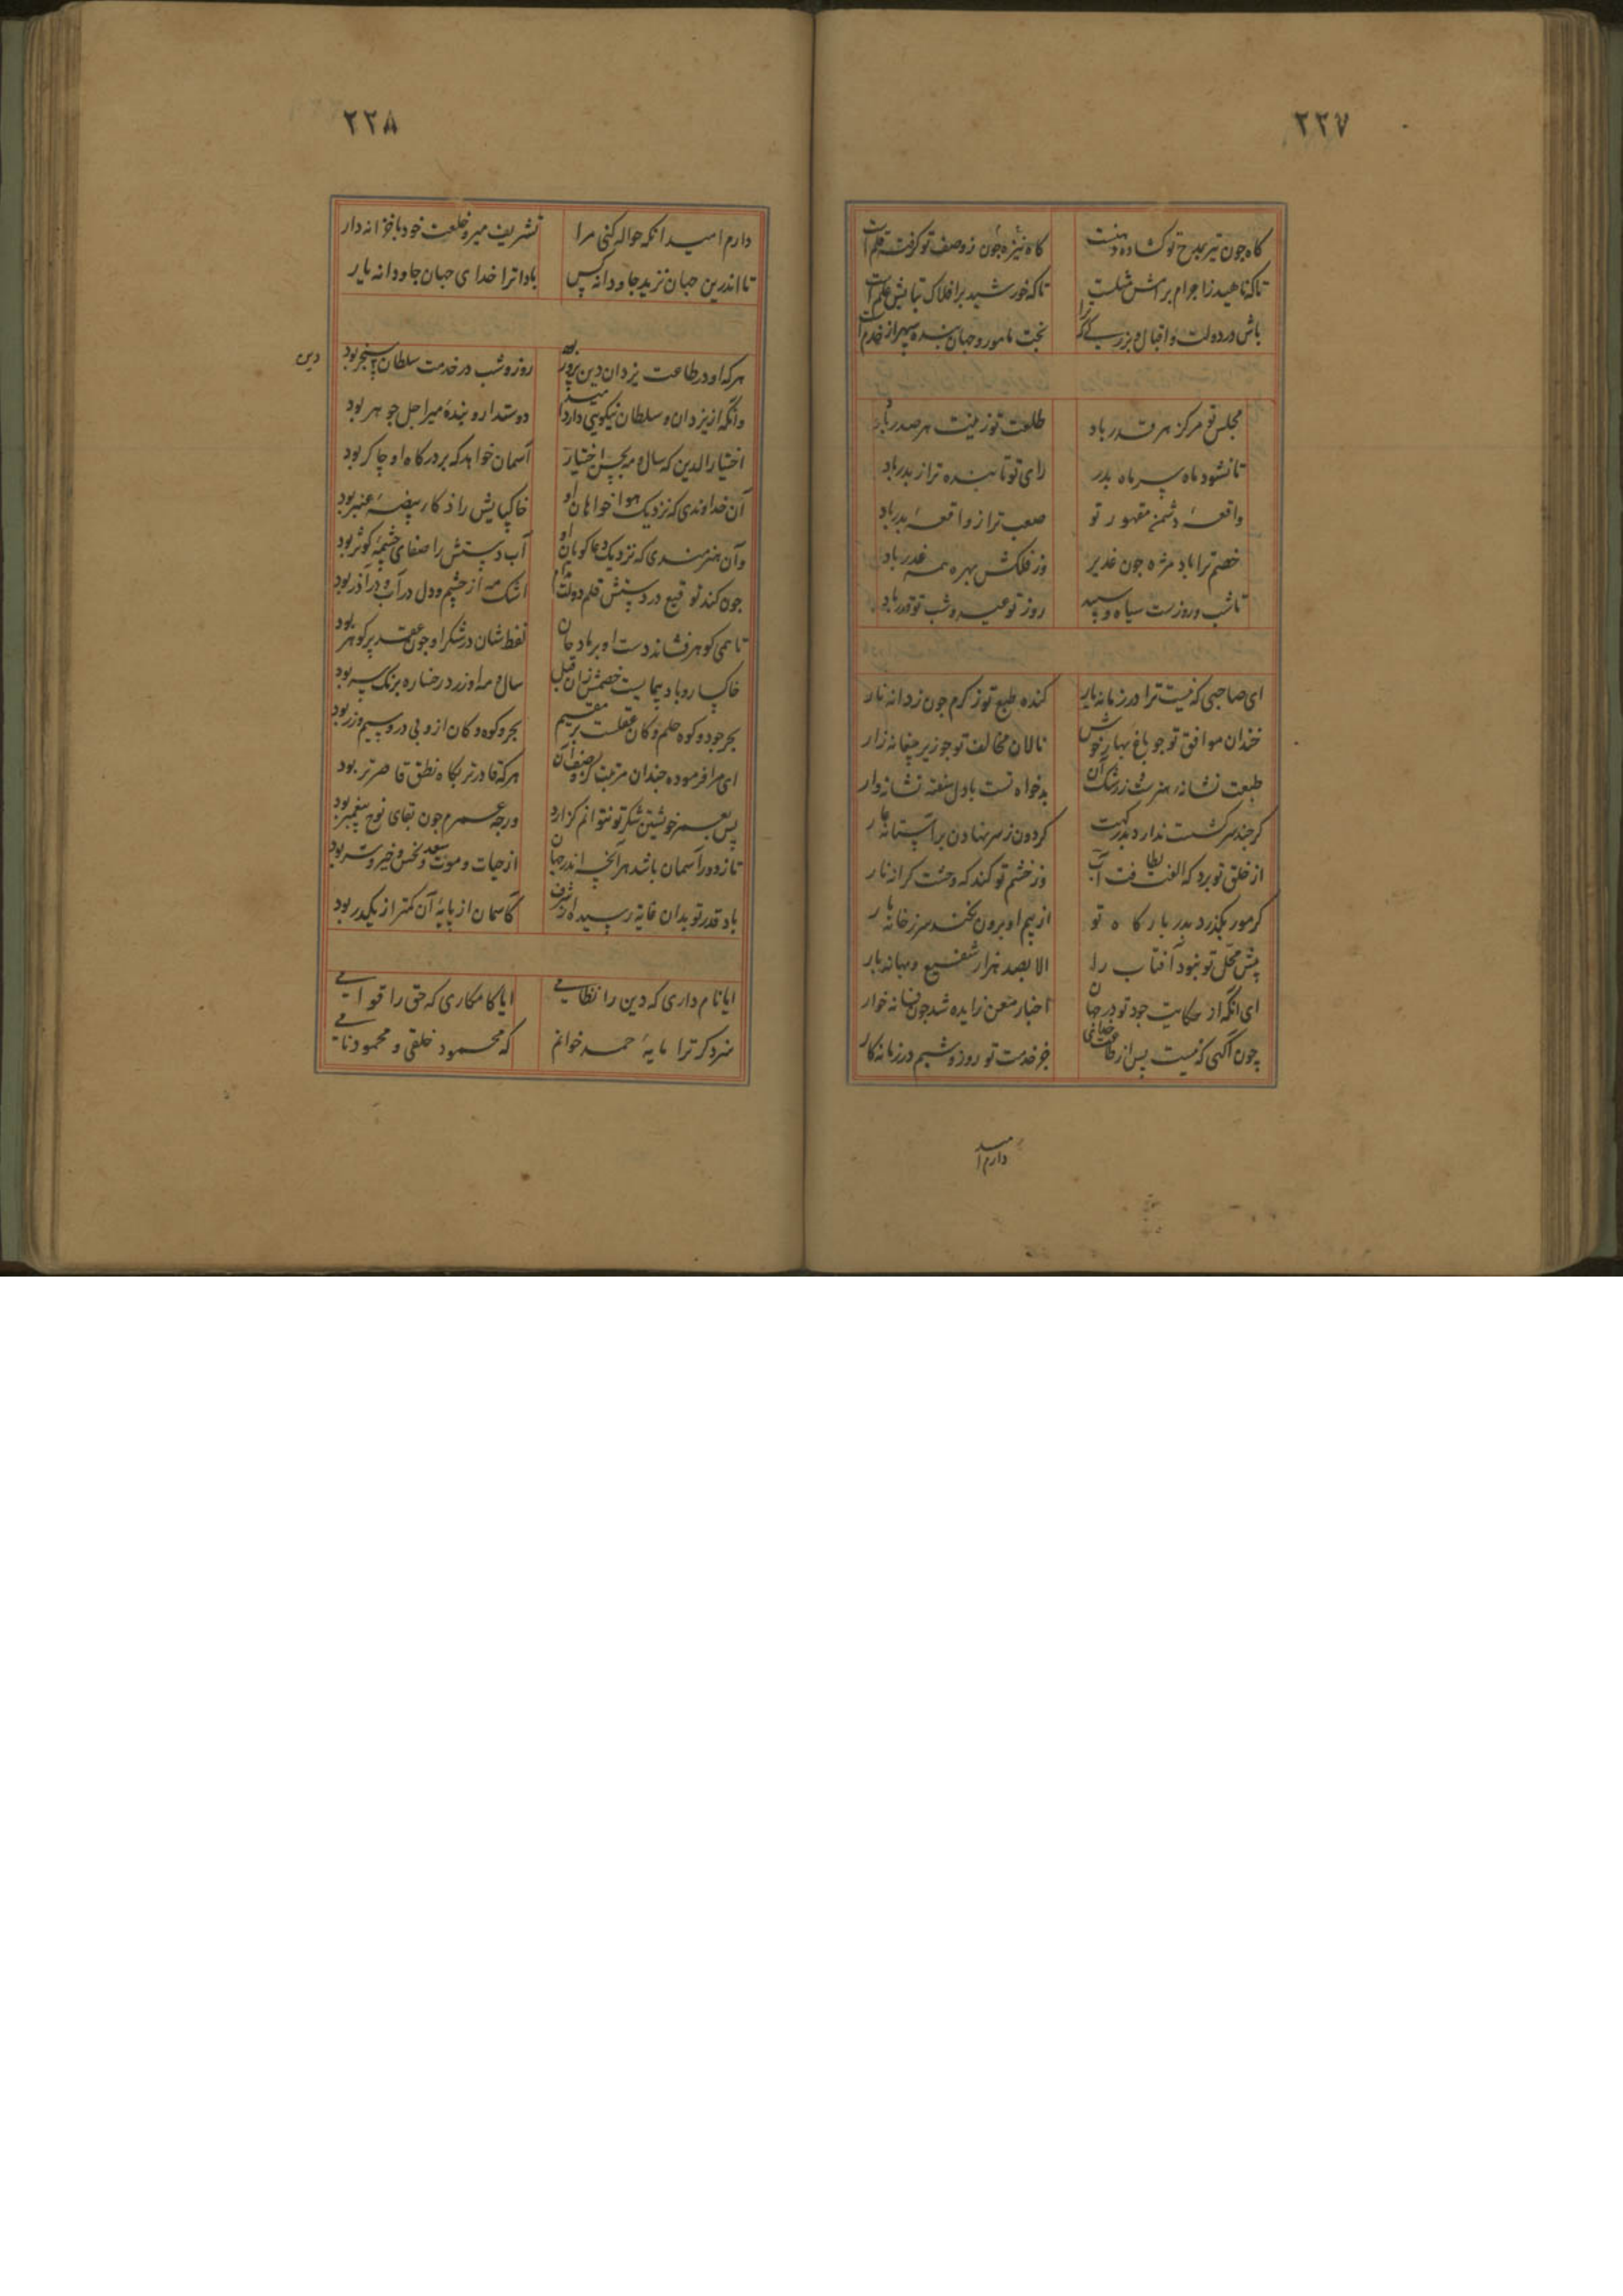 ۲۲۷
کاه چون تیر بمدح تو کشاده دهنت کاه نیزه چون ز وصف تو کرفته قلم است
تا که ناهید ز اجرام برامش مثلست تا که خورشید بر افلاک بتابش علم است
باش در دولت و اقبال و بزرگی که ترا بخت مامور و جهان بنده سپهر از خدم است
مجلس تو مرکز هر قدر باد طلعت تو زینت هر صدر باد
تا نشود ماه سپر ماه بدر رای تو تابنده تر از بدر باد
واقعهٔ دشمن مقهور تو صعب تر از واقعهٔ بدر باد
خصم ترا باد مژه چون غدیر وز فلکش بهره همه غدر باد
تا شب و روزست سیاه و سپید روز تو عید و شب تو قدر باد
ای صاحبی که نیست ترا در زمانه یار کنده طبع تو ز کرم چون ز دانه نار
خندان موافق تو چو باغ بهار خوش نالان مخالف تو چو زیر چغانه زار
طبعت نشانه هنرست وز رشک آن بدخواه تست با دل سفته نشانه وار
کر چند سرکشست ندارد بدرکهت کردون ز سر نهادن بر آستانه عار
از خلق تو برد که الفت لطافت آب وز خشم تو کند که وحشت کرانه نار
کر مور بگذرد بدر بارکاه تو از بیم او برون نکند سر ز خانه مار
پیش محل تو نبود آفتاب را الا بصد هزار شفیع و بهانه بار
ای آنکه از حکایت جود تو در جهان اخبار معن زایده شد چون فسانه خوار
چون آکهی که نیست پس از طاعت خدای جز خدمت تو روز و شبم در زمانه کار
دارم امید
۲۲۸
دارم امید انکه حواله کنی مرا تشریف میر و خلعت خود با خزانه دار
تا اندرین جهان نزید جاودانه کس بادا ترا خدای جهان جاودانه یار
هر که او در طاعت یزدان دین پرور بود روز و شب در خدمت سلطان سنجر بود
دین
وانکه از یزدان و سلطان نیکویی دارد دوستدار و بندهٔ میر اجل جوهر بود
اختیار الدین که سال و مه بحسن اختیار آسمان خواهد که بر درکاه او چاکر بود
آن خداوندی که نزدیک هوا خواهان او خاک پایش را ذکار بیضهٔ عنبر بود
وآن هنرمندی که نزدیک دعا کویان او آب دستش را صفای چشمهٔ کوثر بود
چون کند توقیع در دستش قلم اشک مه از چشم و دل در آب و در آذر بود
تا همی کوهر فشاند دست او بر باد خان لفظشان در شکر او چون عقد پر کوهر بود
خاکسار و باد پیمایست خصمش زان قبل سال و مه او زرد رخساره برنک بود
بحر جود و کوه حلم و کان عقلست مقیم بحر و کوه و کان ازو بی در و سیم و زر بود
ای مرا فرموده چندان مرتبت هرکه قادرتر بگاه نطق قاصرتر بود
پس بعمر خویشتن شکر تو نتوانم کزارد ور چه عمرم چون بقای نوح پیغمبر بود
تا ز دور آسمان باشد هر آنچه اندر جهان از حیات و موت و سعد و نحس و خیر و شر بود
باد قدر تو بدان غایه رسیده از شرف کاسمان از پایهٔ آن کمتر از یکدر بود
ایا نام داری که دین را نظامی ایا کامکاری که حق را قوامی
سزد کر ترا مایهٔ حمد خوانم که محمود خلقی و محمود نامی